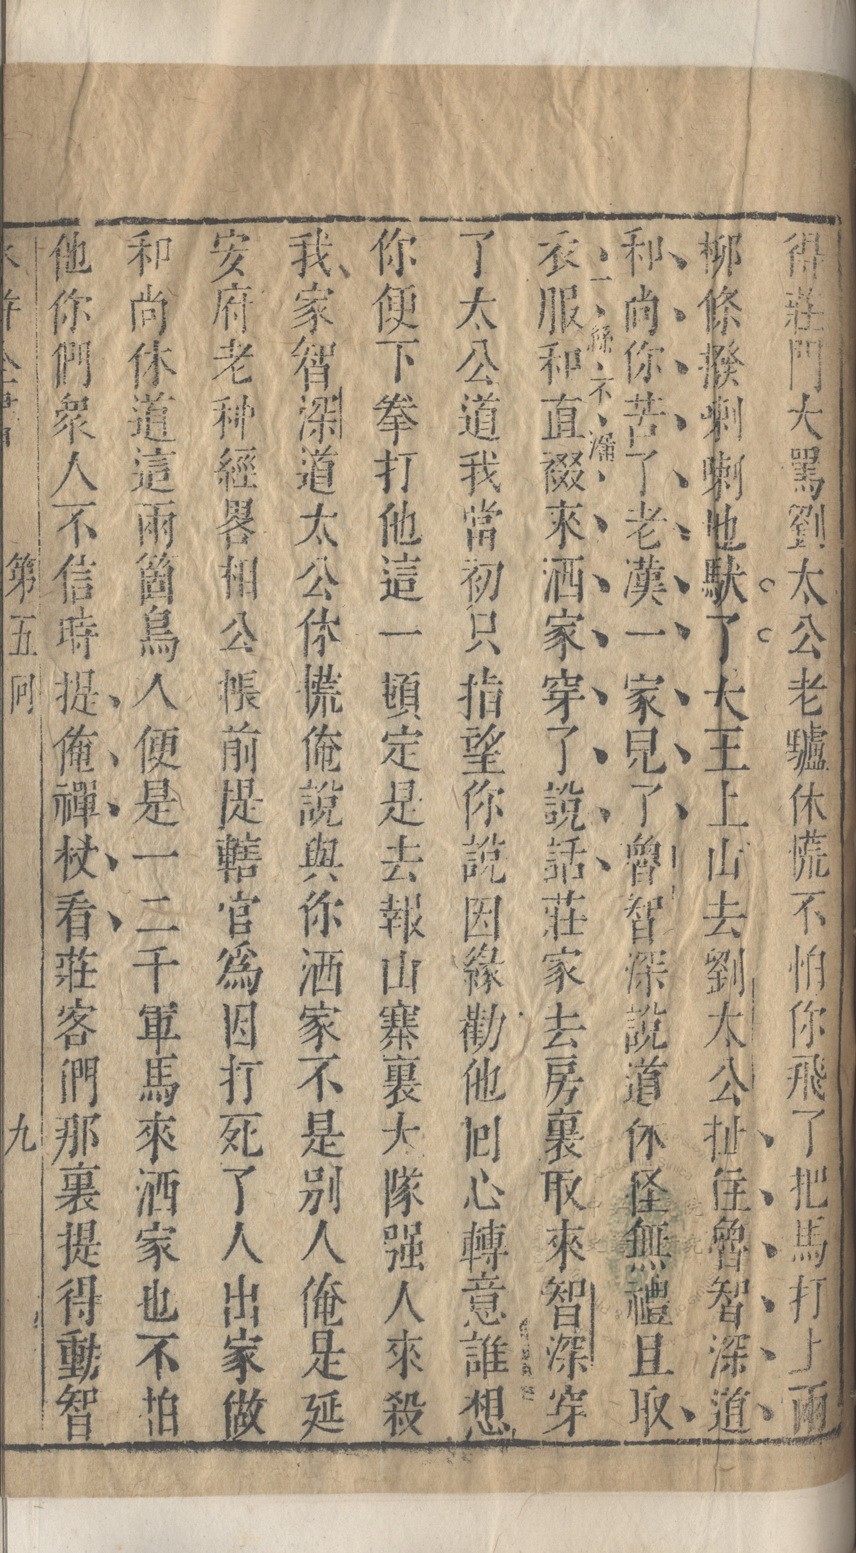 得莊門大罵劉太公老驢休慌不怕你飛了把馬打上兩
柳條撥喇喇地馱了大王上山去劉太公扯住魯智深道
和尚你苦了老漢一家兒了魯智深說道休怪無禮且取
一絲不漏
衣服和直裰來洒家穿了說話莊家去房裏取來智深穿
了太公道我當初只指望你說因緣勸他回心轉意誰想
你便下拳打他這一頓定是去報山寨裏大隊强人來殺
我家智深道太公休慌俺說與你洒家不是别人俺是延
安府老种經畧相公帳前提轄官爲因打死了人出家做
和尚休道這兩箇鳥人便是一二千軍馬來洒家也不怕
他你們衆人不信時提俺禪杖看莊客們那裏提得動智
第五回 九